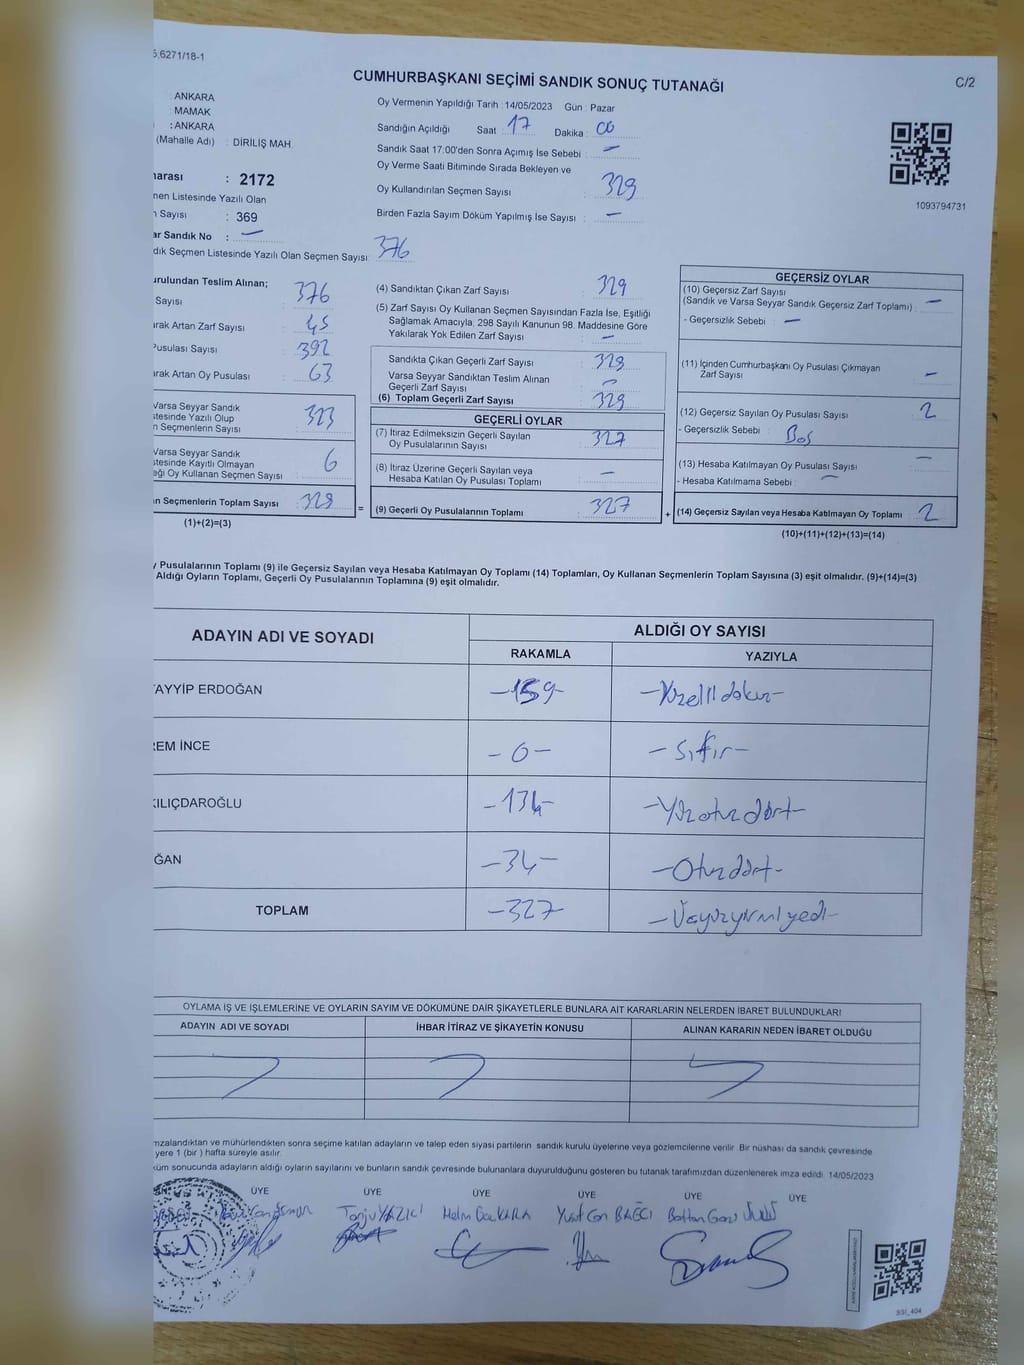 6271/18-1
CUMHURBAŞKANI SEÇİMİ SANDIK SONUÇ TUTANAĞI
C/2
: ANKARA
: MAMAK
: ANKARA
(Mahalle Adı) : DİRİLİŞ MAH.
: 2172
Listesinde Yazılı Olan
Sayısı : 369
Sandık No : —
Seçmen Listesinde Yazılı Olan Seçmen Sayısı: 376
Oy Vermenin Yapıldığı Tarih : 14/05/2023 Gün : Pazar
Sandığın Açıldığı Saat : 17 Dakika : 00
Sandık Saat 17:00'den Sonra Açımış İse Sebebi : —
Oy Verme Saati Bitiminde Sırada Bekleyen ve
Oy Kullandırılan Seçmen Sayısı : 329
Birden Fazla Sayım Döküm Yapılmış İse Sayısı : —
1093794731
Teslim Alınan; 376
Sayısı
Artan Zarf Sayısı : 45
Sayısı : 392
Artan Oy Pusulası : 63
Varsa Seyyar Sandık
Yazılı Olup
Seçmenlerin Sayısı : 323
Varsa Seyyar Sandık
Kayıtlı Olmayan
Oy Kullanan Seçmen Sayısı : 6
Seçmenlerin Toplam Sayısı : 329
(1)+(2)=(3)
=
(4) Sandıktan Çıkan Zarf Sayısı : 329
(5) Zarf Sayısı Oy Kullanan Seçmen Sayısından Fazla İse, Eşitliği
Sağlamak Amacıyla, 298 Sayılı Kanunun 98. Maddesine Göre
Yakılarak Yok Edilen Zarf Sayısı : —
Sandıkta Çıkan Geçerli Zarf Sayısı : 329
Varsa Seyyar Sandıktan Teslim Alınan
Geçerli Zarf Sayısı : —
(6) Toplam Geçerli Zarf Sayısı : 329
GEÇERLİ OYLAR
(7) İtiraz Edilmeksizin Geçerli Sayılan
Oy Pusulalarının Sayısı : 327
(8) İtiraz Üzerine Geçerli Sayılan veya
Hesaba Katılan Oy Pusulaları Toplamı : —
(9) Geçerli Oy Pusulalarının Toplamı : 327
+
GEÇERSİZ OYLAR
(10) Geçersiz Zarf Sayısı
(Sandık ve Varsa Seyyar Sandık Geçersiz Zarf Toplamı) : —
- Geçersizlik Sebebi : —
(11) İçinden Cumhurbaşkanı Oy Pusulası Çıkmayan
Zarf Sayısı : —
(12) Geçersiz Sayılan Oy Pusulası Sayısı : 2
- Geçersizlik Sebebi : Boş
(13) Hesaba Katılmayan Oy Pusulası Sayısı : —
- Hesaba Katılmama Sebebi : —
(14) Geçersiz Sayılan veya Hesaba Katılmayan Oy Toplamı : 2
(10)+(11)+(12)+(13)=(14)
Pusulalarının Toplamı (9) ile Geçersiz Sayılan veya Hesaba Katılmayan Oy Toplamı (14) Toplamları, Oy Kullanan Seçmenlerin Toplam Sayısına (3) eşit olmalıdır. (9)+(14)=(3)
Aldığı Oyların Toplamı, Geçerli Oy Pusulalarının Toplamına (9) eşit olmalıdır.
ADAYIN ADI VE SOYADI ALDIĞI OY SAYISI
RAKAMLA YAZIYLA
TAYYİP ERDOĞAN -159- -Yüzellidokuz-
İNCE -0- -Sıfır-
KILIÇDAROĞLU -134- -Yüzotuzdört-
-34- -Otuzdört-
TOPLAM -327- -Üçyüzyirmiyedi-
OYLAMA İŞ VE İŞLEMLERİNE VE OYLARIN SAYIM VE DÖKÜMÜNE DAİR ŞİKAYETLERLE BUNLARA AİT KARARLARIN NELERDEN İBARET BULUNDUKLARI
ADAYIN ADI VE SOYADI İHBAR İTİRAZ VE ŞİKAYETİN KONUSU ALINAN KARARIN NEDEN İBARET OLDUĞU
imzalandıktan ve mühürlendikten sonra seçime katılan adayların ve talep eden siyasi partilerin sandık kurulu üyelerine veya gözlemcilerine verilir. Bir nüshası da sandık çevresinde
yere 1 (bir) hafta süreyle asılır.
sonucunda adayların aldığı oyların sayılarını ve bunların sandık çevresinde bulunanlara duyurulduğunu gösteren bu tutanak tarafımızdan düzenlenerek imza edildi. 14/05/2023
ÜYE ÜYE ÜYE ÜYE ÜYE ÜYE
Tanju YAZICI Yusuf Can BAĞCI